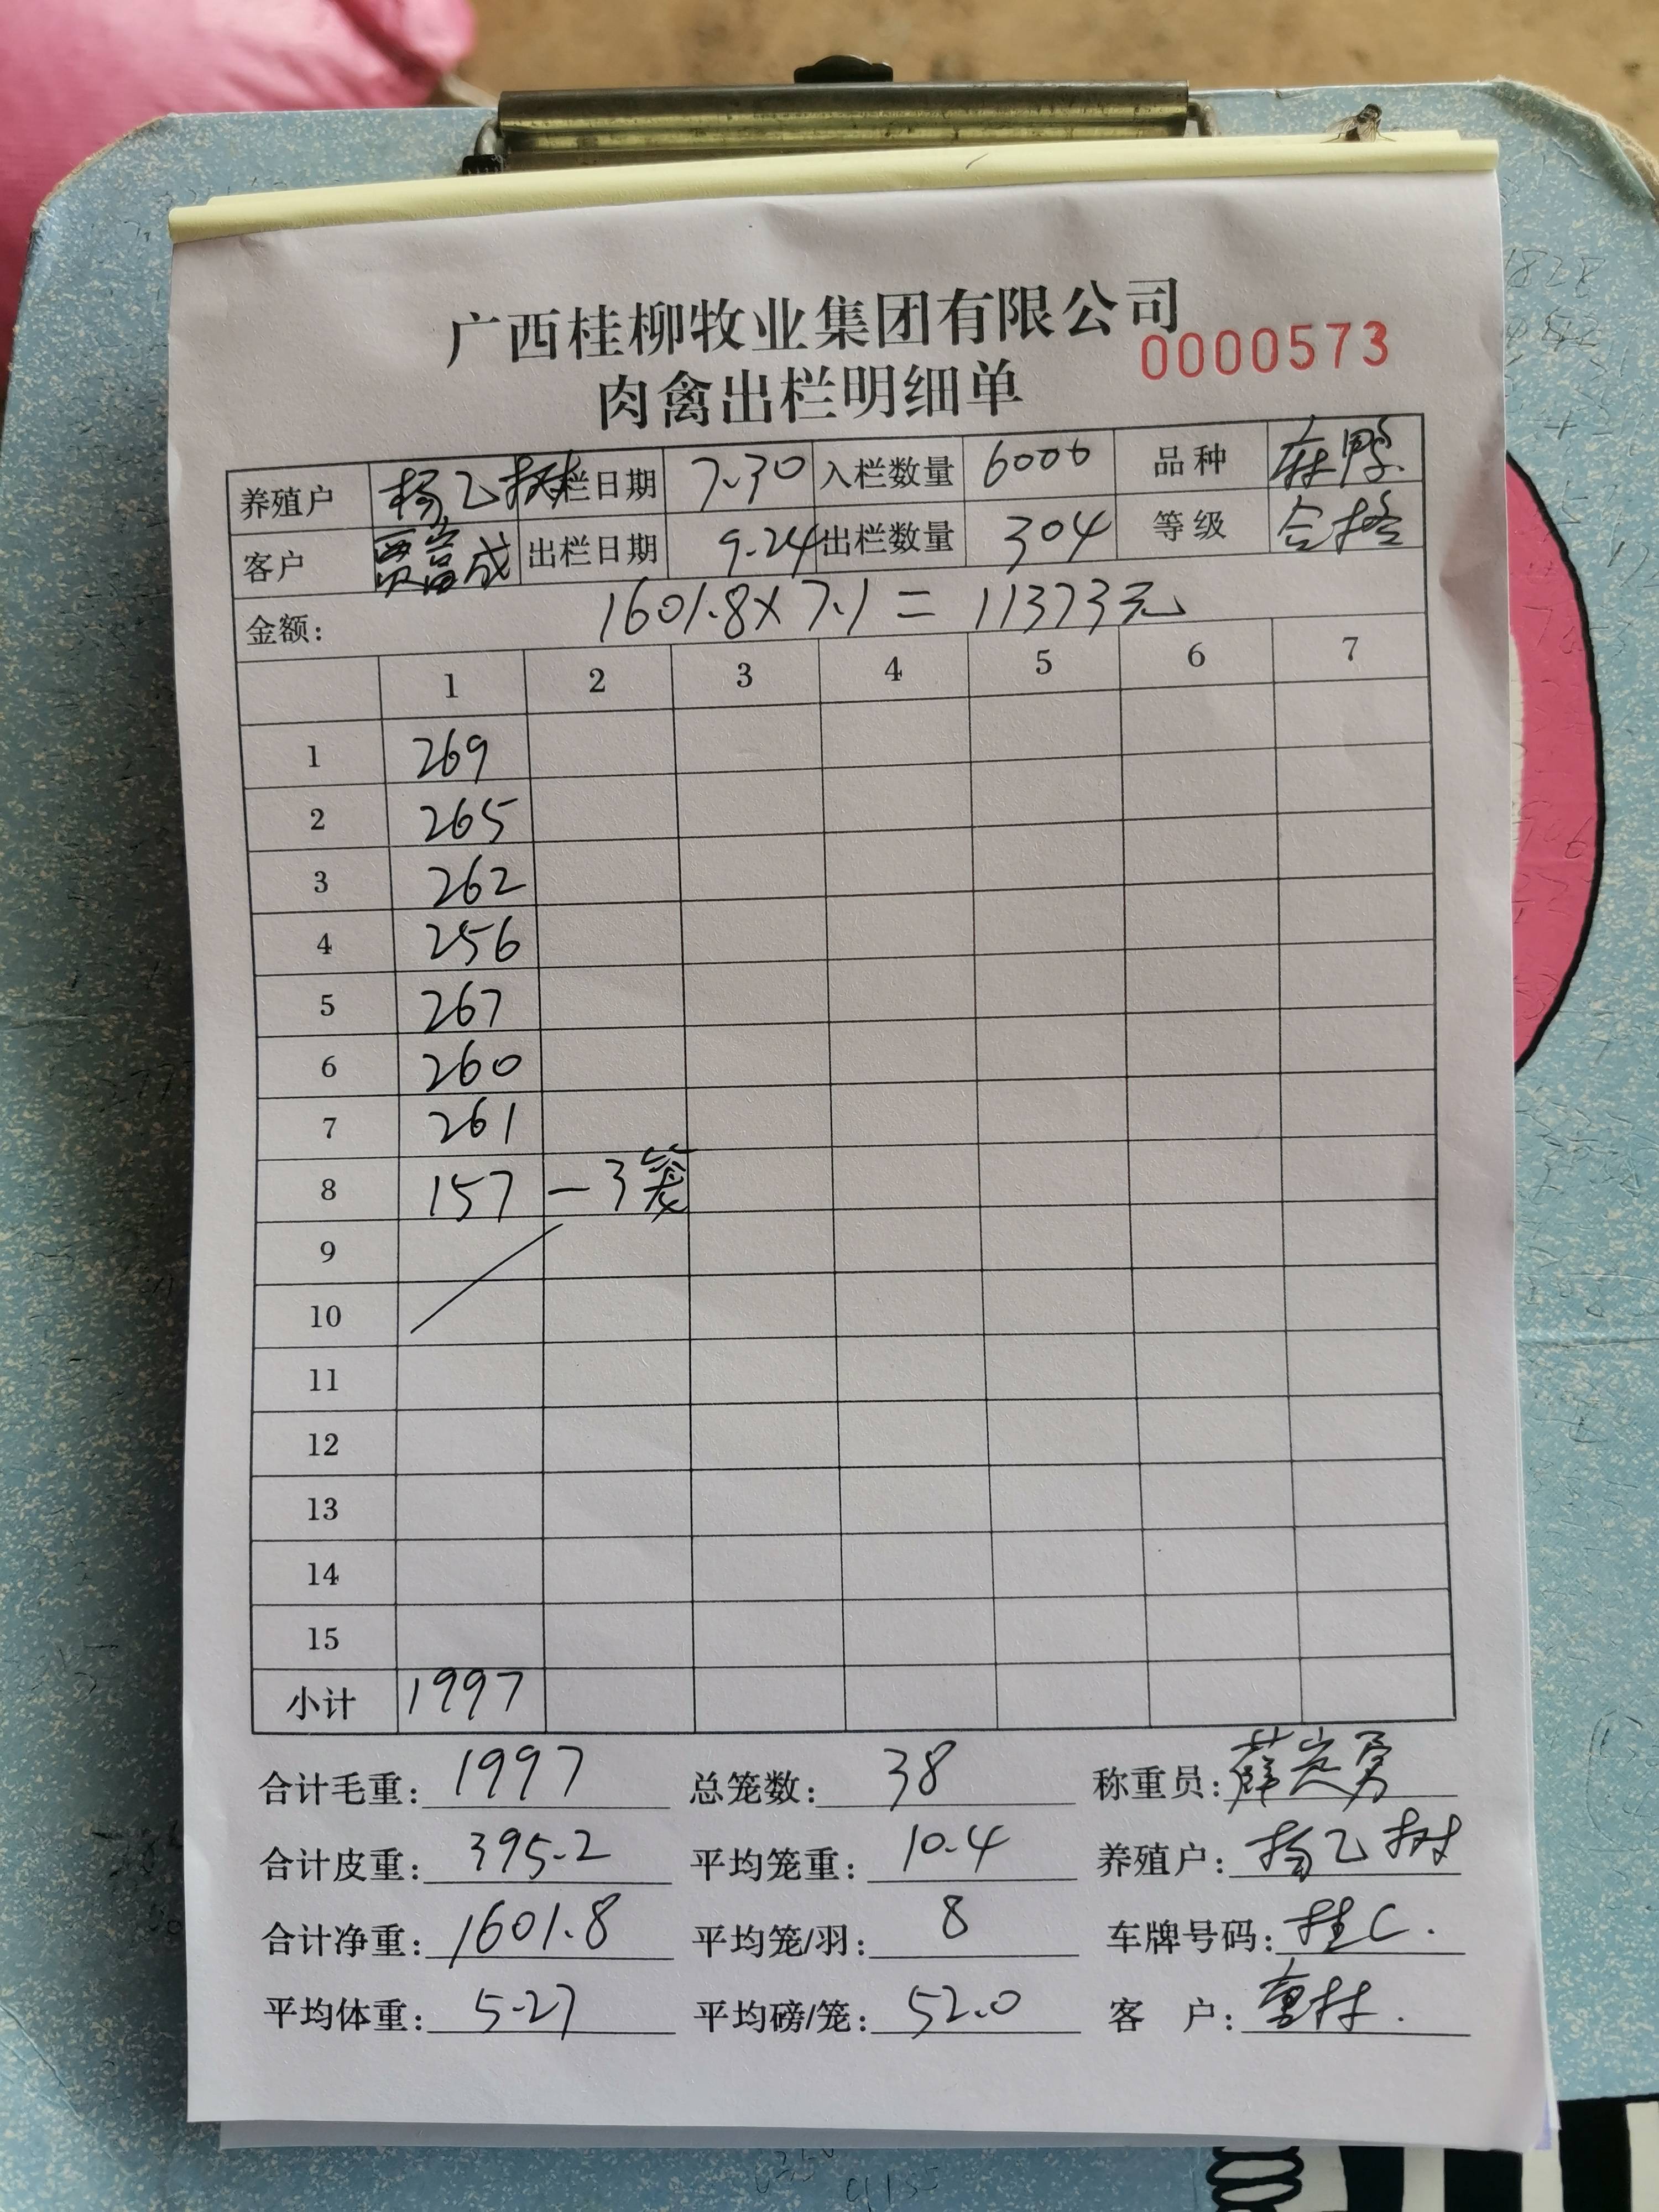 广西桂柳牧业集团有限公司
0000573
肉禽出栏明细单
养殖户 杨乙树 栏日期 7.30 入栏数量 6000 品种 麻鸭
客户 贾富成 出栏日期 9.24 出栏数量 304 等级 合格
金额: 1601.8×7.1=11373元
1 2 3 4 5 6 7
1 269
2 265
3 262
4 256
5 267
6 260
7 261
8 157 — 3笼
9
10
11
12
13
14
15
小计 1997
合计毛重: 1997 总笼数: 38 称重员: 薛
合计皮重: 395.2 平均笼重: 10.4 养殖户: 杨乙树
合计净重: 1601.8 平均笼/羽: 8 车牌号码: 桂C.
平均体重: 5.27 平均磅/笼: 52.0 客 户: